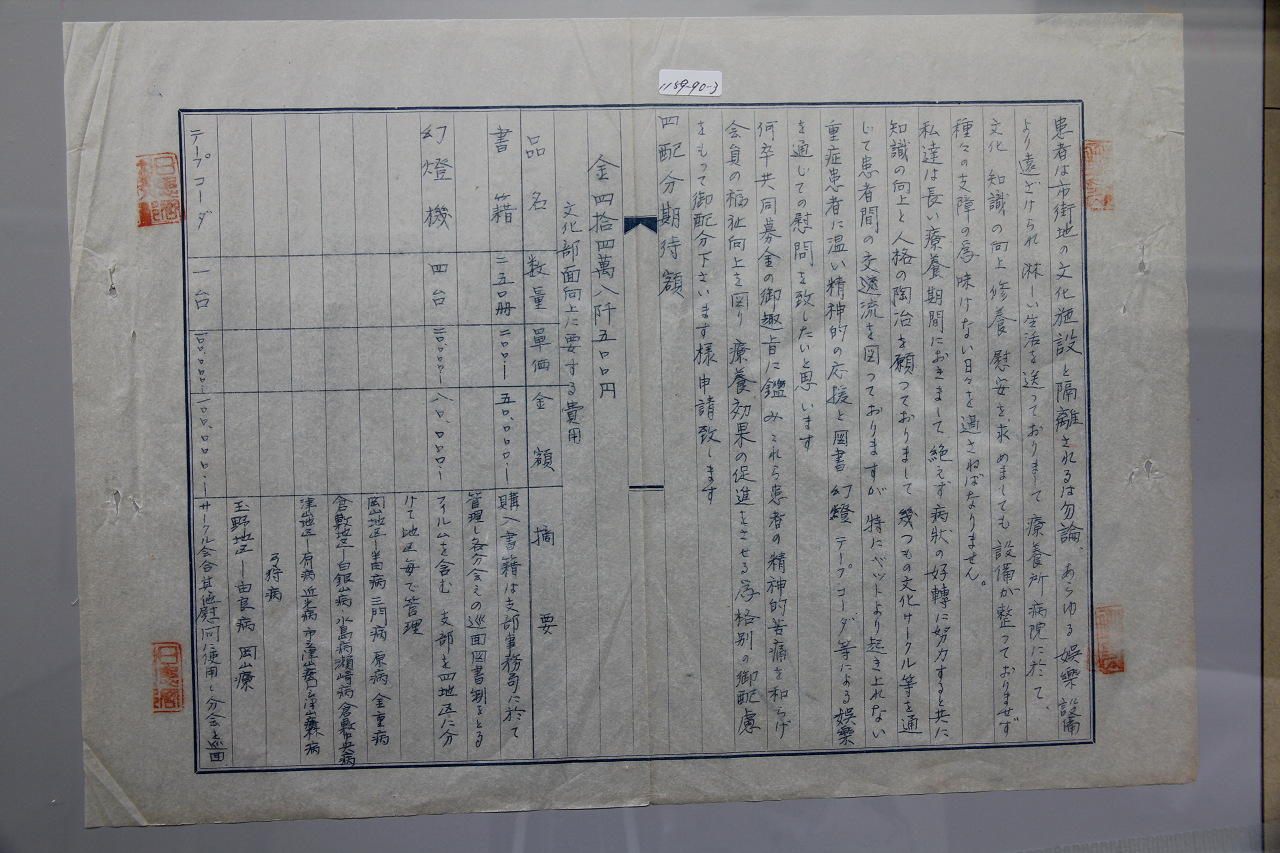 1189-90-3
患者は市街地の文化施設と隔離されるは勿論、あらゆる娯樂設備
より遠ざけられ淋しい生活を送っておりまして療養所病院に於て、
文化知識の向上修養慰安を求めましても設備が整つておりませず
種々の支障の為味けない日々を過さねばなりません。
私達は長い療養期間におきまして絶えず病状の好轉に努力すると共に
知識の向上と人格の陶冶を願つておりまして幾つもの文化サークル等を通
じて患者間の交流を図つておりますが特にベットより起き上れない
重症患者に温い精神的の応援と図書幻燈テープコーダ等による娯樂
を通じての慰問を致したいと思います
何卒共同募金の御趣旨に鑑みこれら患者の精神的苦痛を和らげ
会員の福祉向上を図り療養効果の促進をさせる為格別の御配慮
をもつて御配分下さいます様申請致します
四配分期待額
金四拾四萬八阡五〇〇円
文化部面向上に要する費用
品名 数量 單価 金額 摘要
書籍 二五〇冊 二〇〇、 五〇、〇〇〇、 購入書籍は支部事務局に於て
管理し各分会えの巡回図書制をとる
幻燈機 四台 二〇、〇〇〇、 八〇、〇〇〇、 フィルムを含む 支部を四地区に分
けて地区毎で管理
岡山地区 病 三門病 原病 金重病
倉敷地区 白銀山病 水島病 瀬崎病 倉敷中央病
津山地区 有病 近光病 市津山病 津山療病
狩病
玉野地区 由良病 岡山療
テープコーダ 一台 一〇〇、〇〇〇、 一〇〇、〇〇〇、 サークル会合其他慰问に使用し分会を巡回